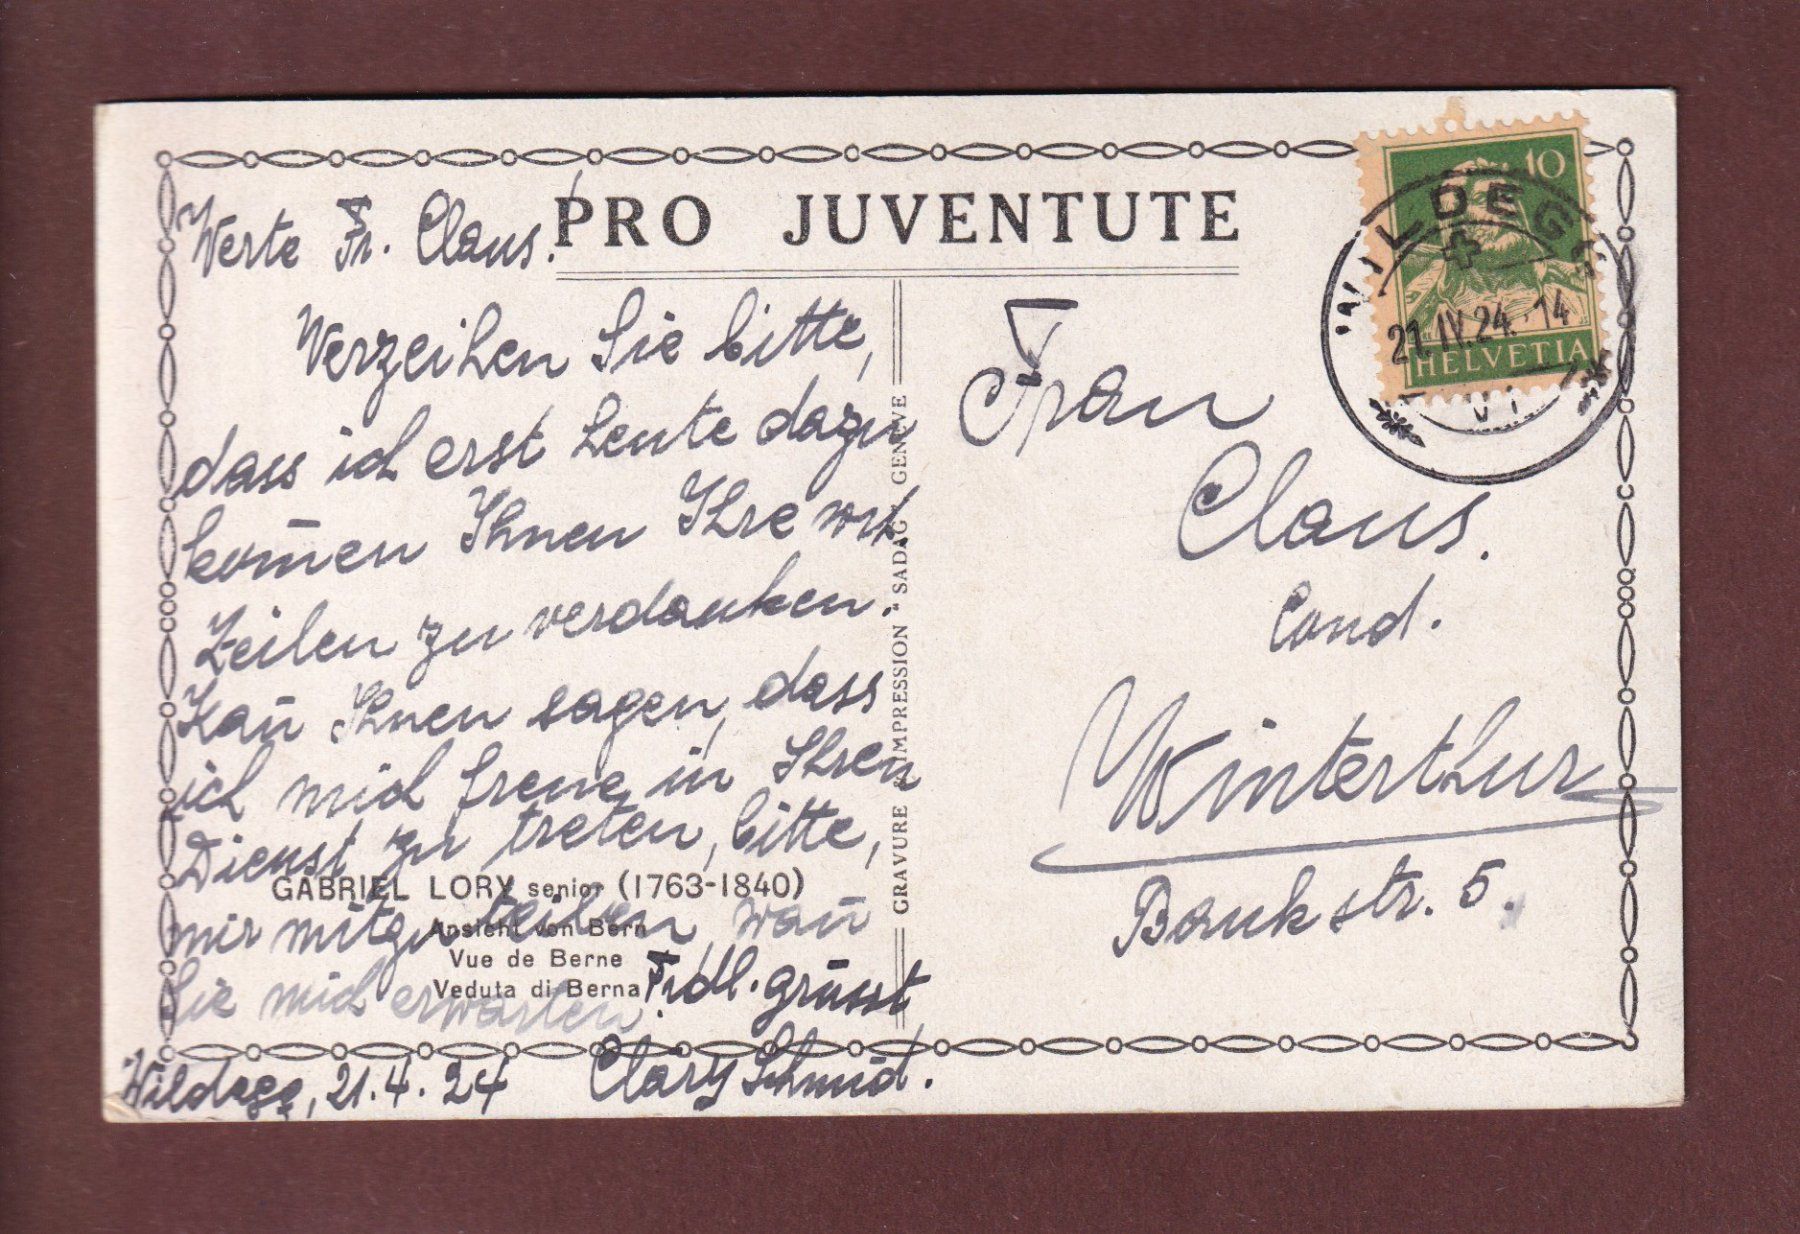 PRO JUVENTUTE
Werte Fr. Claus.
Verzeihen Sie bitte,
dass ich erst heute dazu
kom̄en Ihnen Ihre wrt.
Zeilen zu verdanken.
Kan̄ Ihnen sagen, dass
ich mich freue, in Ihren
Dienst zu treten, bitte,
mir mitzuteilen, wan̄
Sie mich erwarten.
Frdl. grüsst
Clary Schmid.
Wildegg, 21.4.24
GABRIEL LORY senior (1763-1840)
Ansicht von Bern
Vue de Berne
Veduta di Berna
GRAVURE & IMPRESSION "SADAG" GENÈVE
10
HELVETIA
WILDEGG
21.IV.24.-14
VI
Frau
Claus.
Cond.
Winterthur
Bankstr. 5.